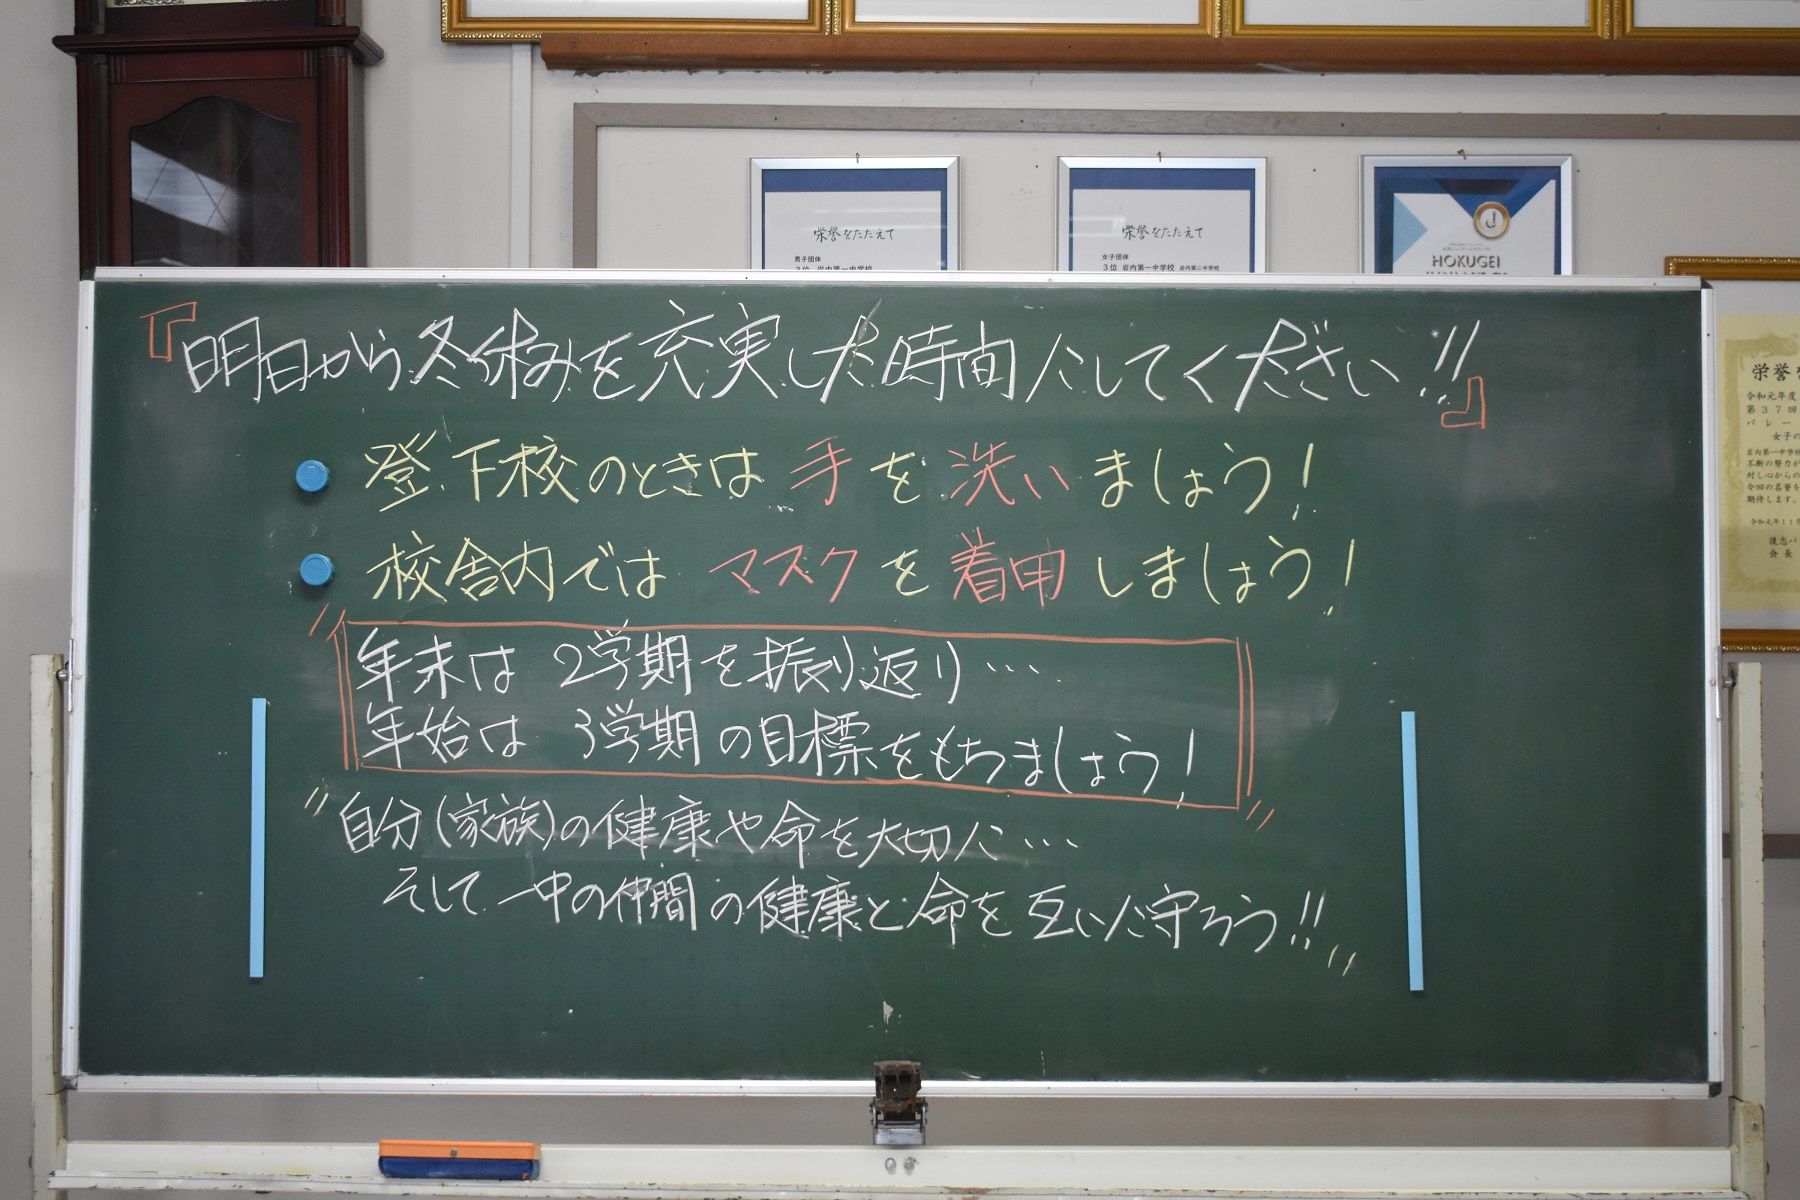 栄誉をたたえて
男子団体
3位 岩内第一中学校
栄誉をたたえて
女子団体
3位 岩内第一中学校 岩内第二中学校
HOKUGEI
『明日から冬休みを充実した時間にしてください!!』
登下校のときは手を洗いましょう!
校舎内ではマスクを着用しましょう!
年末は2学期を振り返り…
年始は3学期の目標をもちましょう!
"自分(家族)の健康や命を大切に…
そして一中の仲間の健康と命を互いに守ろう!!"
栄誉を
令和元年度
第37回
バレー
女子の
岩内第一中学校
不断の努力が
対し心からの
今回の名誉を
期待します。
令和元年11月
後志バ
会長